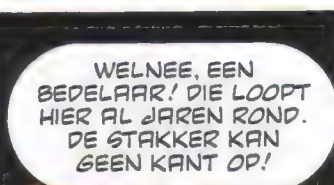 WELNEE, EEN
BEDELAAR! DIE LOOPT
HIER AL JAREN ROND.
DE STAKKER KAN
GEEN KANT OP!